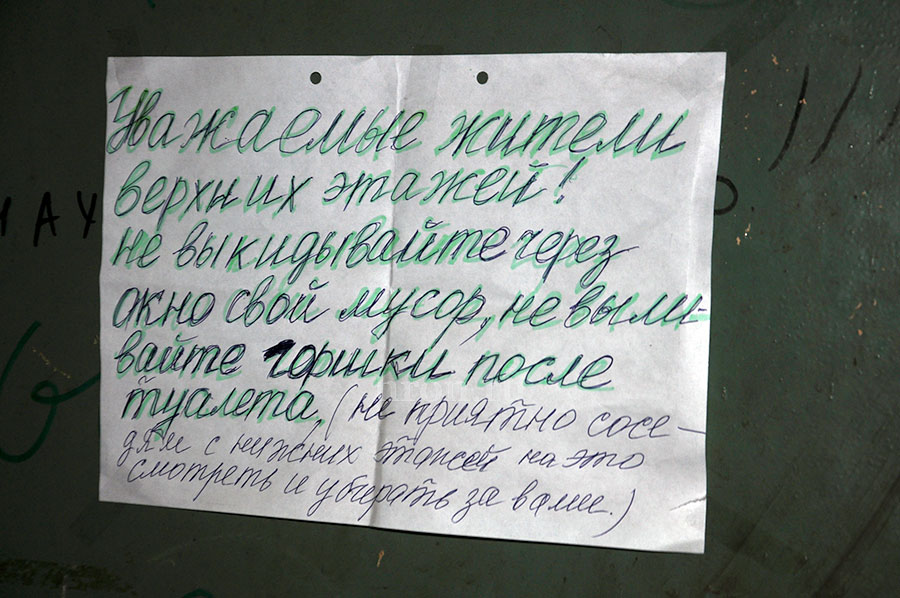 Уважаемые жители
верхних этажей!
не выкидывайте через
окно свой мусор, не выли-
вайте горшки после
туалета, (не приятно сосе-
дям с нижних этажей на это
смотреть и убирать за вами.)